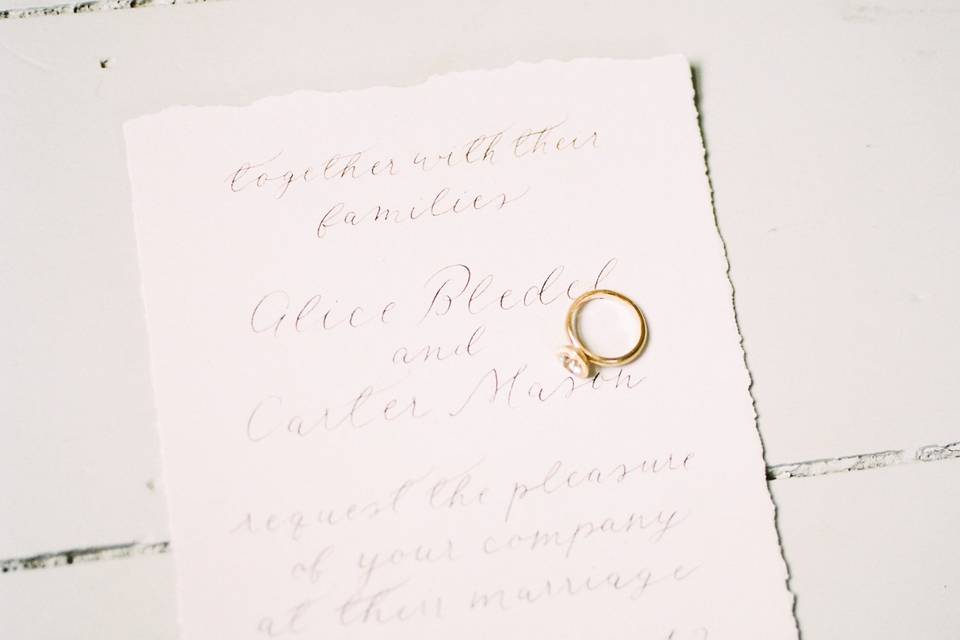 together with their
families
Alice Bledel
and
Carter Mason
request the pleasure
of your company
at their marriage